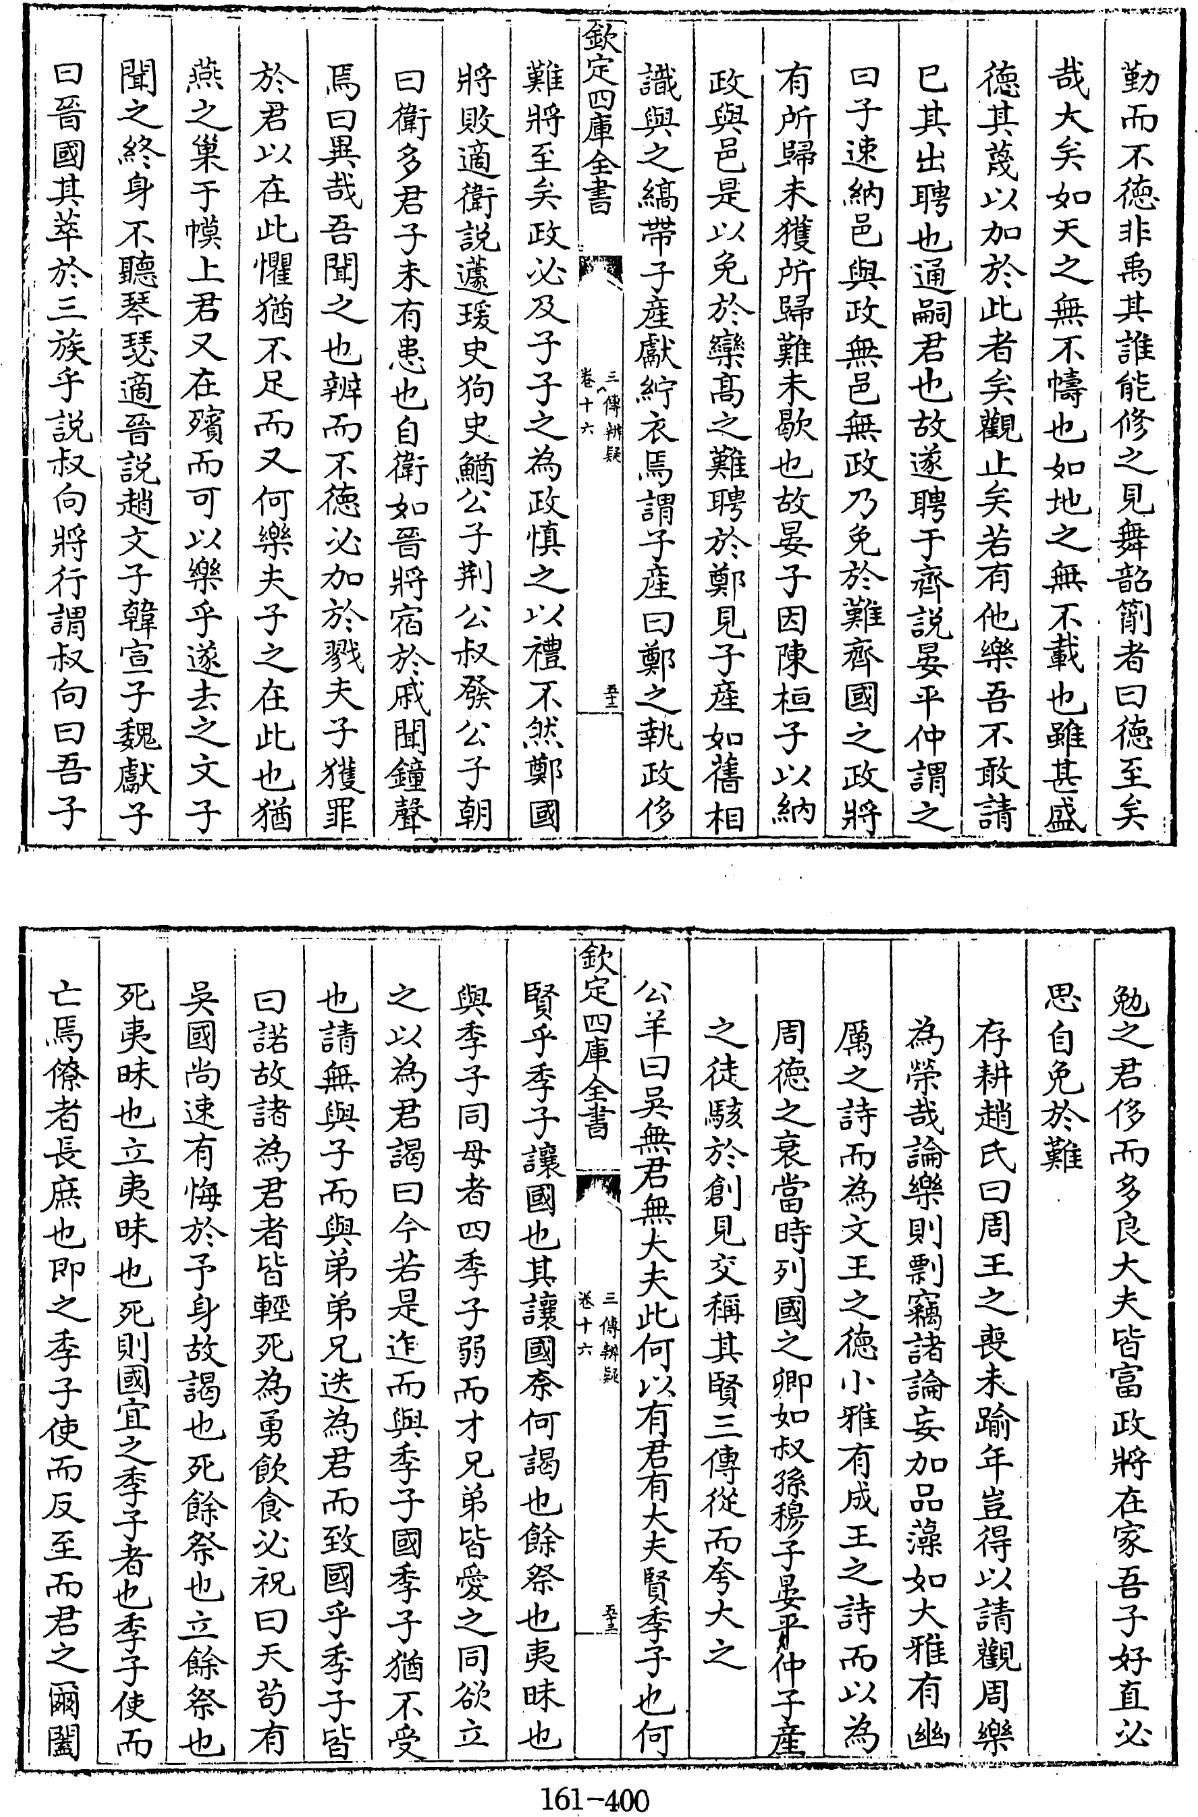 勤而不徳非禹其誰能修之見舞韶箾者曰徳至矣
哉大矣如天之無不幬也如地之無不載也雖甚盛
徳其蔑以加於此者矣觀止矣若有他樂吾不敢請
已其出聘也通嗣君也故遂聘于齊説晏平仲謂之
曰子速納邑與政無邑無政乃免於難齊國之政將
有所歸未獲所歸難未歇也故晏子因陳桓子以納
政與邑是以免於欒高之難聘於鄭見子産如舊相
識與之縞帶子産獻紵衣焉謂子産曰鄭之執政侈
欽定四庫全書
三傳辨疑
卷十六
五十二
難將至矣政必及子子之為政慎之以禮不然鄭國
將敗適衛説蘧瑗史狗史鰌公子荆公叔發公子朝
曰衛多君子未有患也自衛如晉將宿於戚聞鐘聲
焉曰異哉吾聞之也辨而不徳必加於戮夫子獲罪
於君以在此懼猶不足而又何樂夫子之在此也猶
燕之巢于幙上君又在殯而可以樂乎遂去之文子
聞之終身不聽琴瑟適晉説趙文子韓宣子魏獻子
曰晉國其萃於三族乎説叔向將行謂叔向曰吾子
勉之君侈而多良大夫皆富政將在家吾子好直必
思自免於難
存耕趙氏曰周王之喪未踰年豈得以請觀周樂
為榮哉論樂則剽竊諸論妄加品藻如大雅有幽
厲之詩而為文王之徳小雅有成王之詩而以為
周徳之衰當時列國之卿如叔孫穆子晏平仲子產
之徒駭於創見交稱其賢三傳從而夸大之
公羊曰吳無君無大夫此何以有君有大夫賢季子也何
欽定四庫全書
三傳辨疑
卷十六
五十三
賢乎季子讓國也其讓國奈何謁也餘祭也夷昧也
與季子同母者四季子弱而才兄弟皆愛之同欲立
之以為君謁曰今若是迮而與季子國季子猶不受
也請無與子而與弟弟兄迭為君而致國乎季子皆
曰諾故諸為君者皆輕死為勇飲食必祝曰天苟有
吳國尚速有悔於予身故謁也死餘祭也立餘祭也
死夷昧也立夷昧也死則國宜之季子者也季子使而
亡焉僚者長庶也即之季子使而反至而君之爾闔
161-400